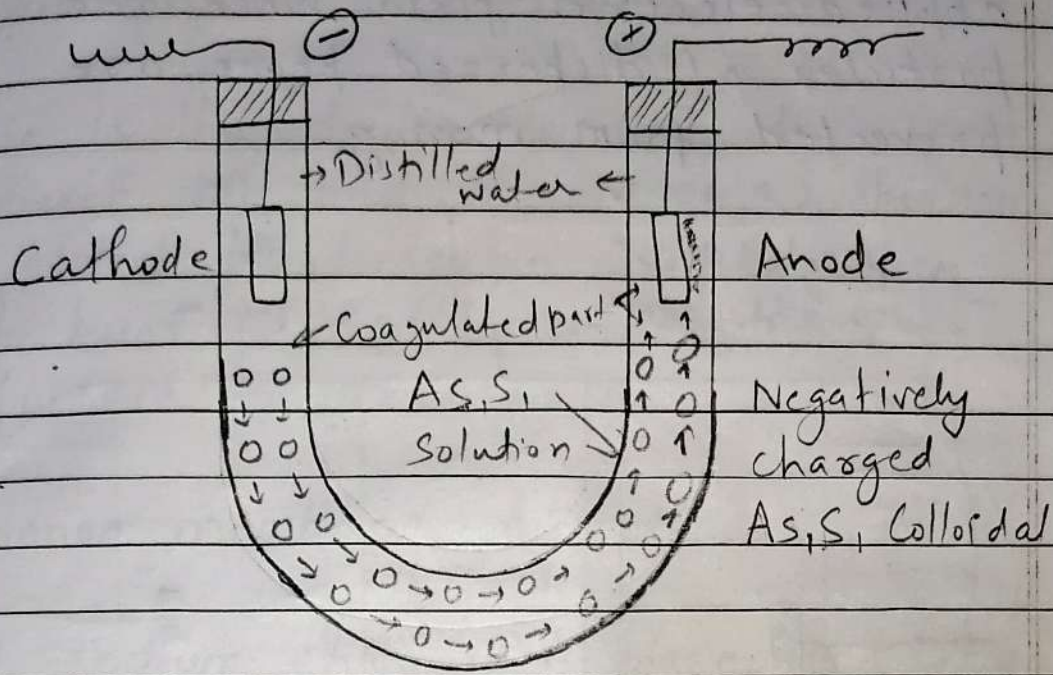 ⊖ ⊕
→ Distilled
water ←
Cathode
Anode
Coagulated part
As,S,
Solution
Negatively
charged
As,S, Colloidal